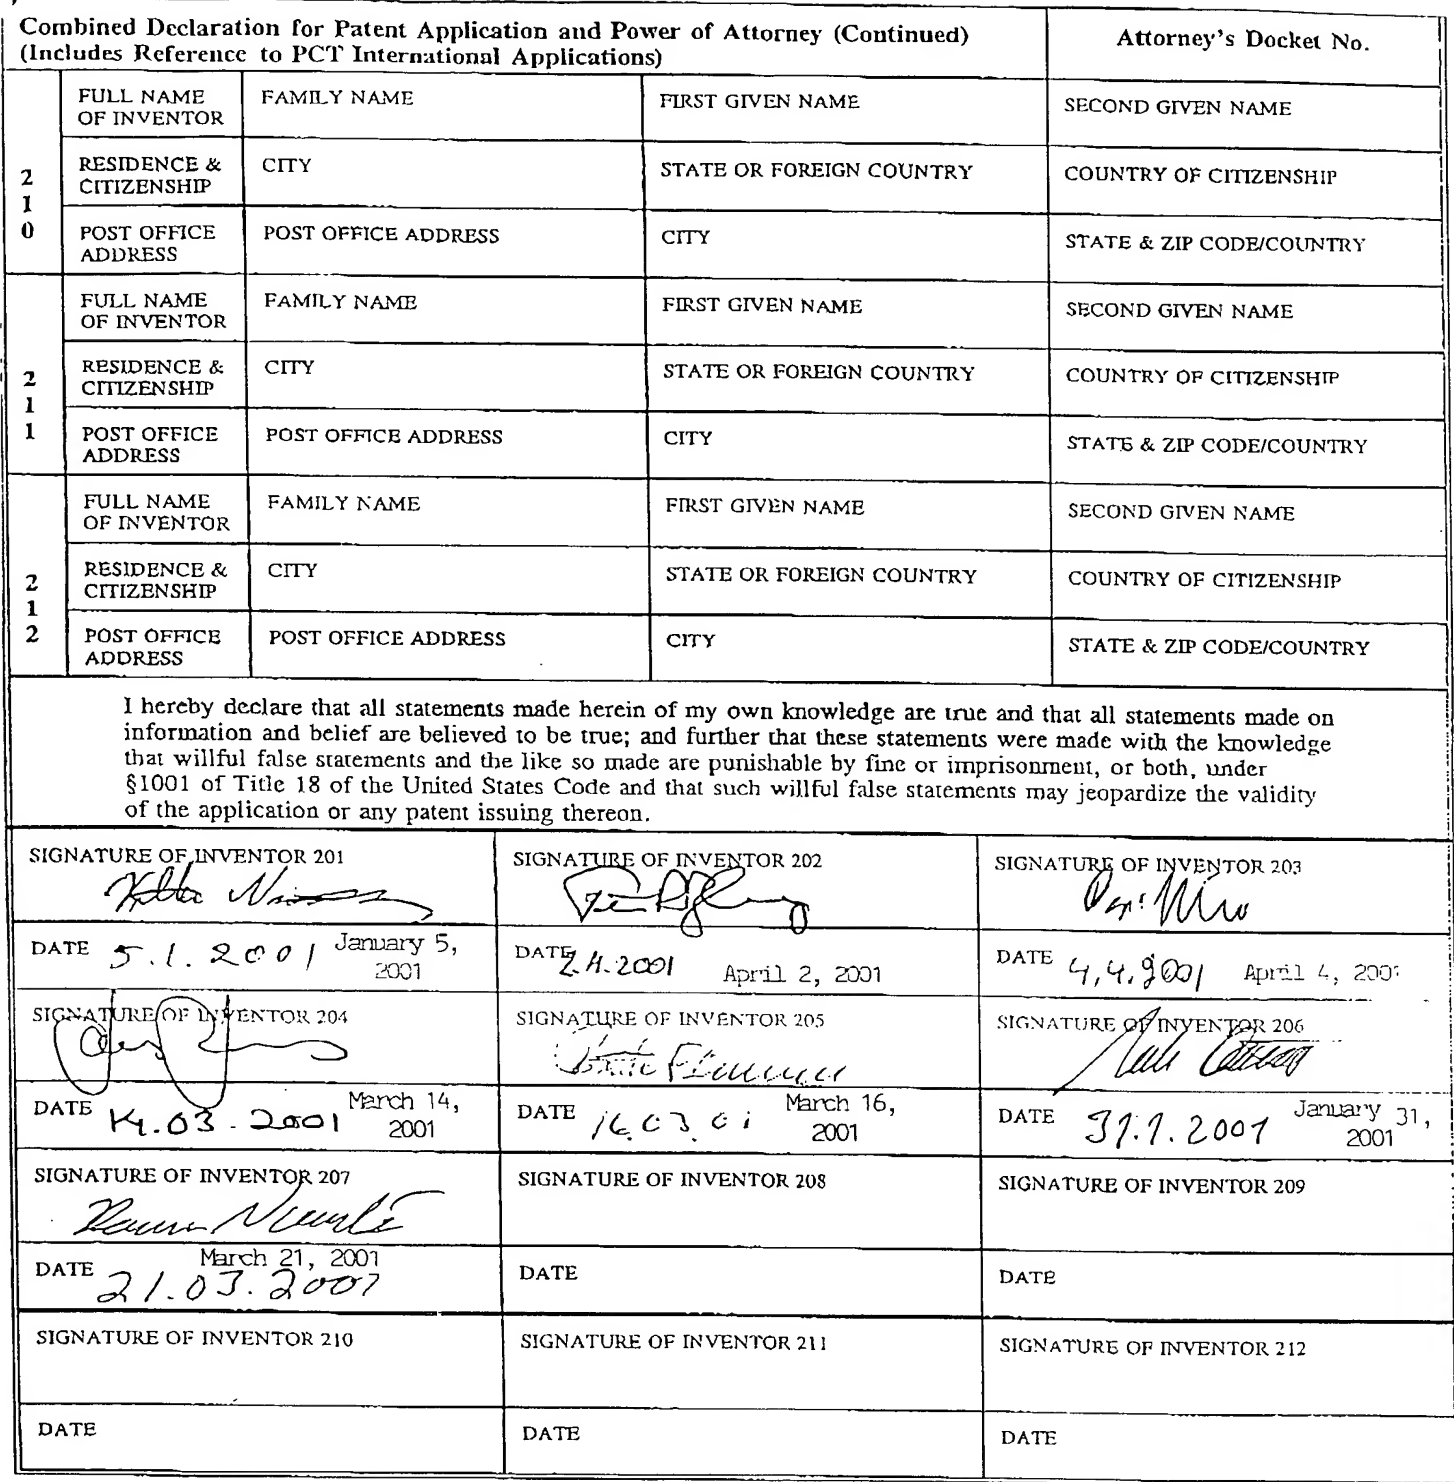 Combined Declaration for Patent Application and Power of Attorney (Continued)
(Includes Reference to PCT International Applications)
Attorney's Docket No.
210
FULL NAME OF INVENTOR
FAMILY NAME
FIRST GIVEN NAME
SECOND GIVEN NAME
RESIDENCE & CITIZENSHIP
CITY
STATE OR FOREIGN COUNTRY
COUNTRY OF CITIZENSHIP
POST OFFICE ADDRESS
POST OFFICE ADDRESS
CITY
STATE & ZIP CODE/COUNTRY
211
FULL NAME OF INVENTOR
FAMILY NAME
FIRST GIVEN NAME
SECOND GIVEN NAME
RESIDENCE & CITIZENSHIP
CITY
STATE OR FOREIGN COUNTRY
COUNTRY OF CITIZENSHIP
POST OFFICE ADDRESS
POST OFFICE ADDRESS
CITY
STATE & ZIP CODE/COUNTRY
212
FULL NAME OF INVENTOR
FAMILY NAME
FIRST GIVEN NAME
SECOND GIVEN NAME
RESIDENCE & CITIZENSHIP
CITY
STATE OR FOREIGN COUNTRY
COUNTRY OF CITIZENSHIP
POST OFFICE ADDRESS
POST OFFICE ADDRESS
CITY
STATE & ZIP CODE/COUNTRY
I hereby declare that all statements made herein of my own knowledge are true and that all statements made on
information and belief are believed to be true; and further that these statements were made with the knowledge
that willful false statements and the like so made are punishable by fine or imprisonment, or both, under
§1001 of Title 18 of the United States Code and that such willful false statements may jeopardize the validity
of the application or any patent issuing thereon.
SIGNATURE OF INVENTOR 201
SIGNATURE OF INVENTOR 202
SIGNATURE OF INVENTOR 203
DATE 5.1.2001 January 5, 2001
DATE 2.4.2001 April 2, 2001
DATE 4.4.2001 April 4, 2001
SIGNATURE OF INVENTOR 204
SIGNATURE OF INVENTOR 205
SIGNATURE OF INVENTOR 206
DATE 14.03.2001 March 14, 2001
DATE 16.03.01 March 16, 2001
DATE 31.1.2001 January 31, 2001
SIGNATURE OF INVENTOR 207
SIGNATURE OF INVENTOR 208
SIGNATURE OF INVENTOR 209
DATE March 21, 2001
21.03.2001
DATE
DATE
SIGNATURE OF INVENTOR 210
SIGNATURE OF INVENTOR 211
SIGNATURE OF INVENTOR 212
DATE
DATE
DATE